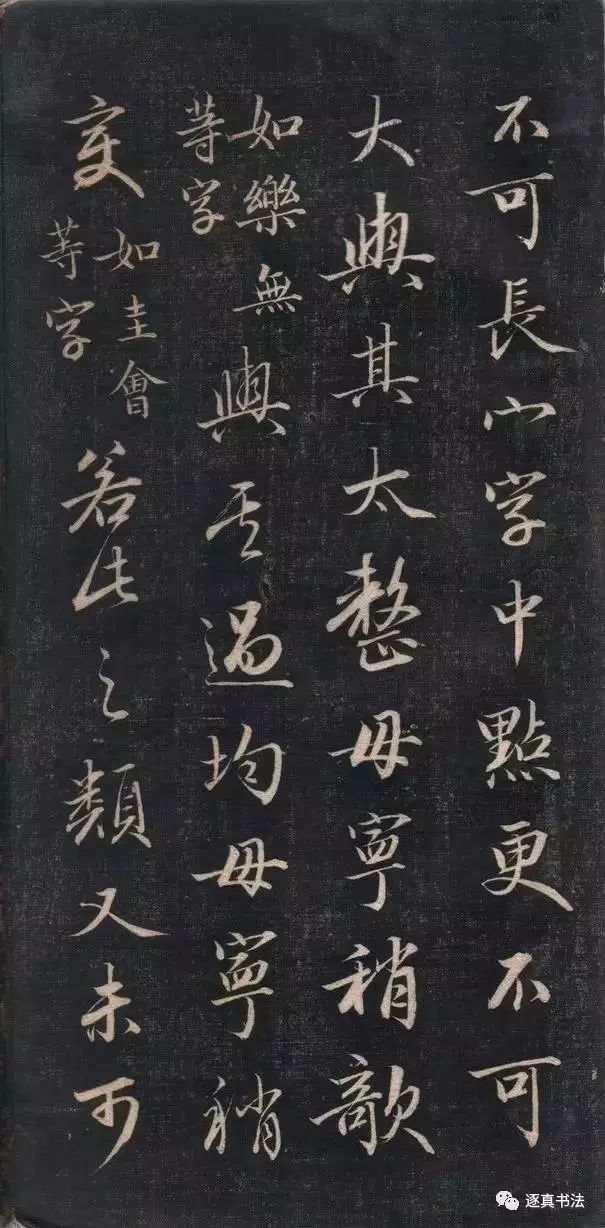 不可長宀字中點更不可
大與其太整毋寧稍欹
如樂無
等字
與其過均毋寧稍
变
如圭會
等字
若此之類又未可
逐真书法